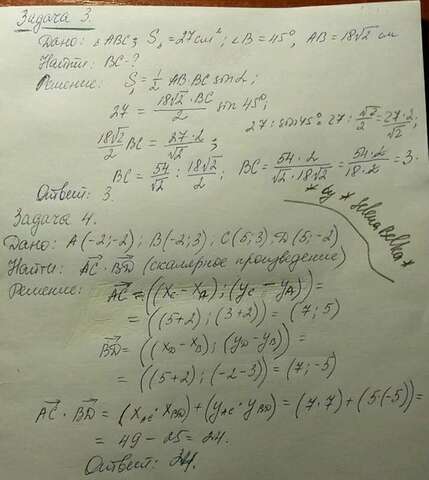 Задача 3.
Дано: △ABC; S△ = 27см²; ∠B = 45°, AB = 18√2 см
Найти: BC - ?
Решение: S△ = 1/2 AB·BC sin∠;
27 = 18√2·BC/2 sin 45°;
27 : sin 45° = 27 : √2/2 = 27·2/√2;
18√2/2 BC = 27·2/√2;
BC = 54/√2 : 18√2/2; BC = 54·2/√2·18√2 = 54·2/18·2 = 3.
Ответ: 3.
* by * SelenaBelka *
Задача 4.
Дано: A(-2;-2); B(-2;3); C(5;3), D(5;-2)
Найти: AC · BD (скалярное произведение)
Решение: AC = ((xC - xA); (yC - yA)) =
= ((5+2); (3+2)) = (7; 5)
BD = ((xD - xB); (yD - yB)) =
= ((5+2); (-2-3)) = (7; -5)
AC · BD = (xAC · xBD) + (yAC · yBD) = (7·7) + (5(-5)) =
= 49 - 25 = 24.
Ответ: 24.